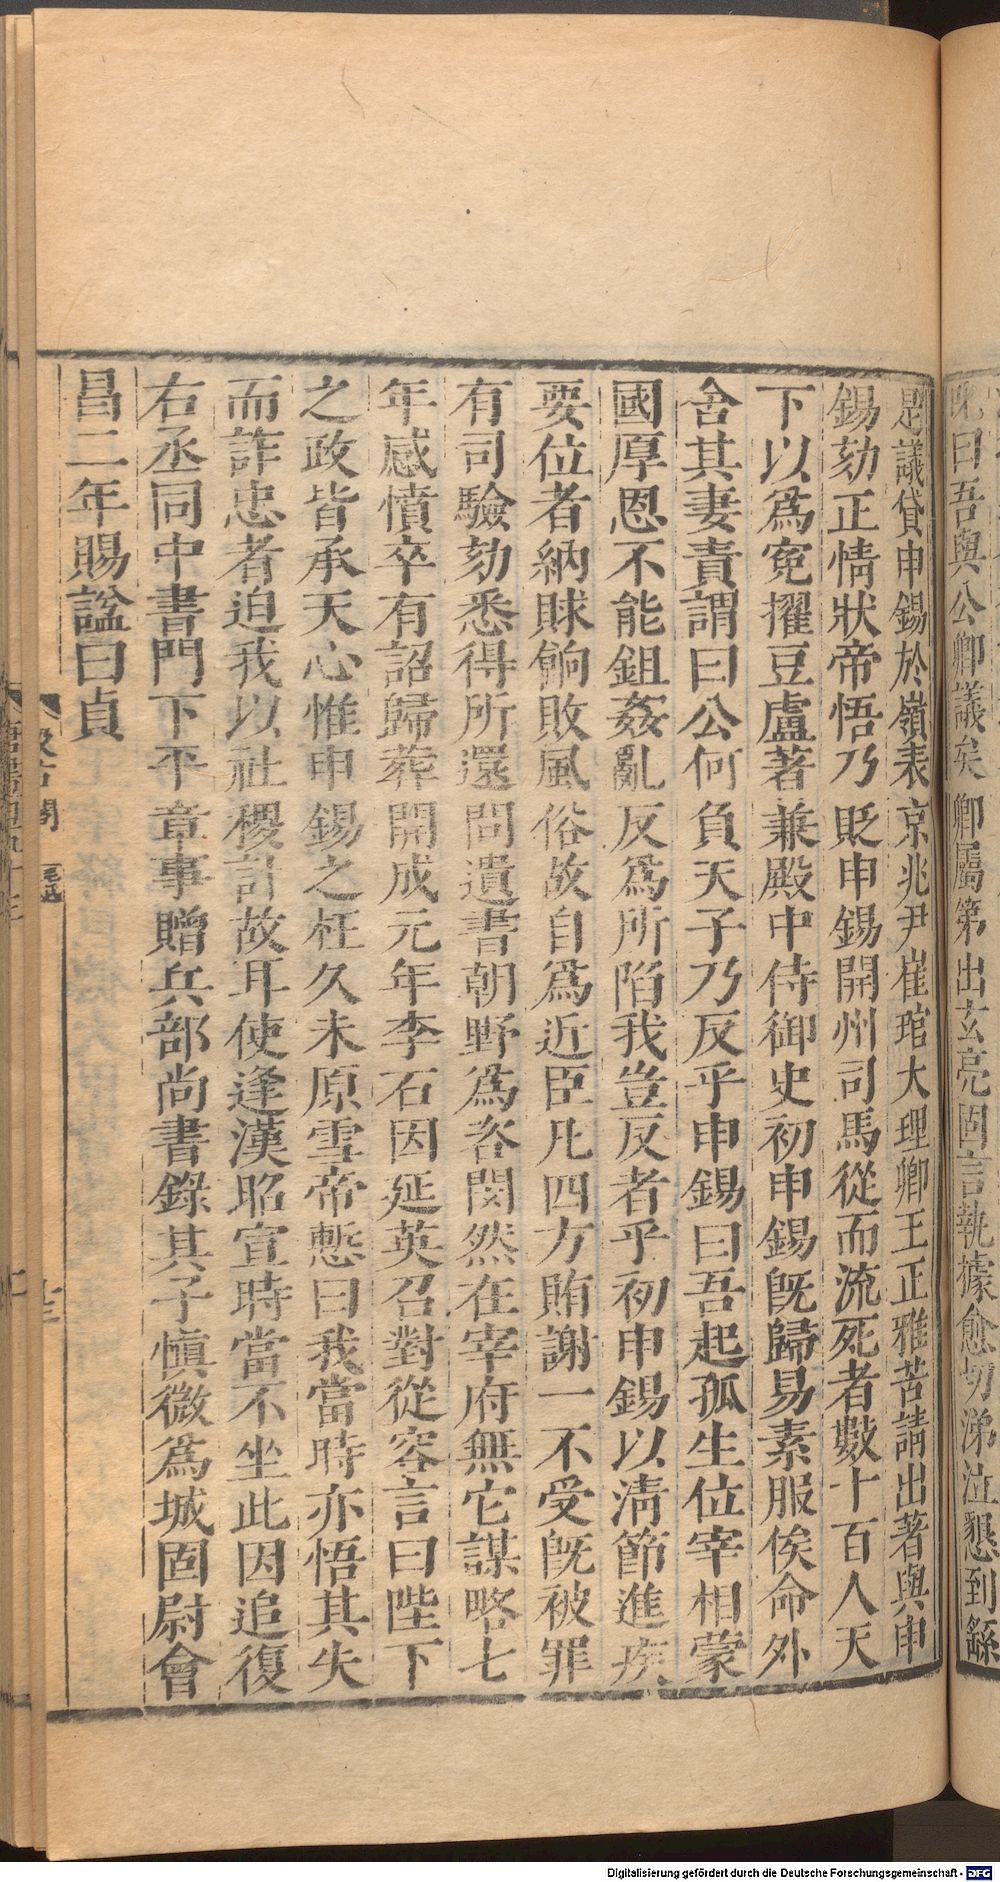 旣曰吾與公卿議矣卿屬第出玄亮固言執據愈切涕泣懇到繇
是議貸申錫於嶺表京兆尹崔琯大理卿王正雅苦請出著與申
錫劾正情狀帝悟乃貶申錫開州司馬從而流死者數十百人天
下以爲寃擢豆盧著兼殿中侍御史初申錫旣歸易素服俟命外
舍其妻責謂曰公何負天子乃反乎申錫曰吾起孤生位宰相蒙
國厚恩不能鉏姦亂反爲所陷我豈反者乎初申錫以淸節進疾
要位者納賕餉敗風俗故自爲近臣凡四方賄謝一不受旣被罪
有司驗劾悉得所還問遺書朝野爲咨閔然在宰府無它謀略七
年感憤卒有詔歸葬開成元年李石因延英召對從容言曰陛下
之政皆承天心惟申錫之枉久未原雪帝慙曰我當時亦悟其失
而詐忠者迫我以社稷計故耳使逢漢昭宣時當不坐此因追復
右丞同中書門下平章事贈兵部尚書錄其子愼微爲城固尉會
昌二年賜諡曰貞
汲古閣
毛氏
Digitalisierung gefördert durch die Deutsche Forschungsgemeinschaft - DFG